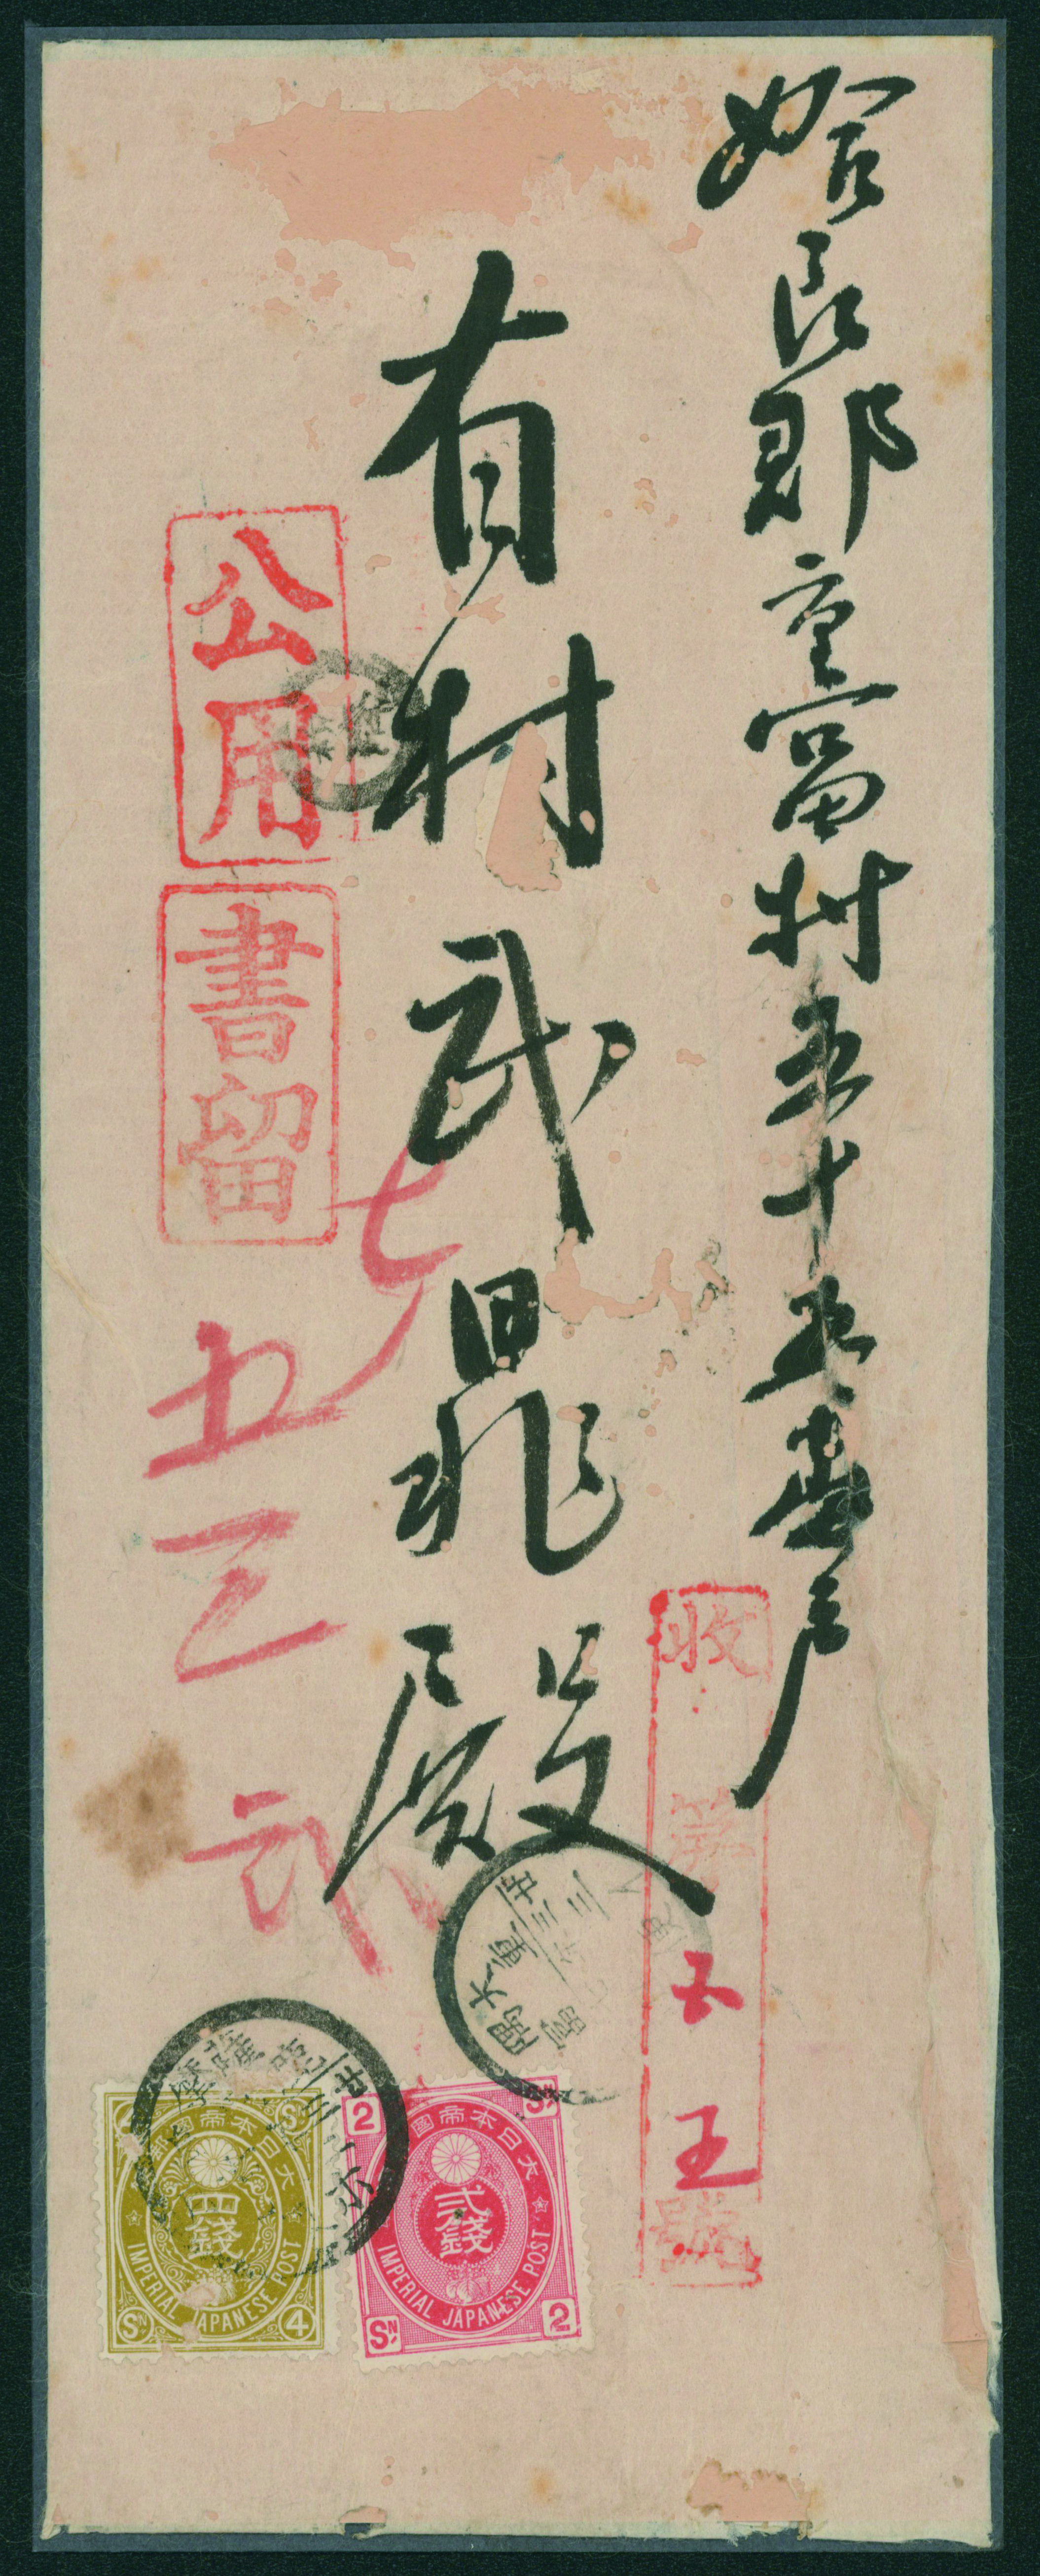 姶良郡重富村五十五番戸
有村武
殿
公用
書留
七
五三
弐
收
第
五
王
號
大日本帝國郵
四錢
IMPERIAL JAPANESE POST
SN
4
SN
大日本帝國
2
SN
貳錢
IMPERIAL JAPANESE POST
SN
2